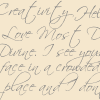 Creativity Hel
Love Most D
Divine. I see you
face in a crowded
place and I don